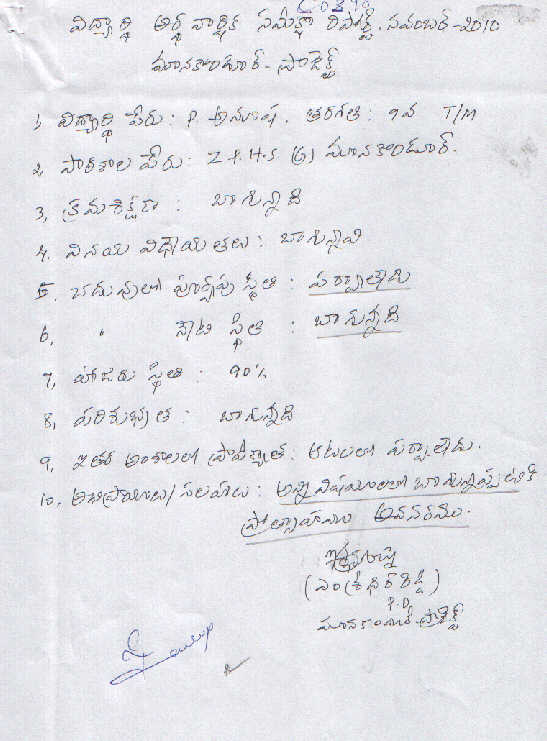 విద్యార్థి అర్థ వార్షిక సమీక్షా రిపోర్ట్. నవంబర్-2010
మానకొండూర్-ప్రాజెక్ట్
1, విద్యార్థి పేరు: P. అనూష. తరగతి: 9వ T/M
2, పాఠశాల పేరు: Z.P.H.S. (G) మానకొండూర్.
3, క్రమశిక్షణ : బాగున్నది
4. వినయ విధేయతలు: బాగున్నవి
5. చదువులో పూర్వపు స్థితి : పర్వాలేదు
6, " నేటి స్థితి : బాగున్నది
7, హాజరు స్థితి : 90%
8, పరిశుభ్రత : బాగున్నది
9, ఇతర అంశాలలో ప్రావీణ్యత: ఆటలలో పర్వాలేదు.
10. అభిప్రాయాలు/సలహాలు: అన్ని విషయాలలో బాగున్నప్పటికి
ప్రోత్సాహం అవసరము.
(ఎం శ్రీధర్ రెడ్డి)
P.D.
మానకొండూర్-ప్రాజెక్ట్